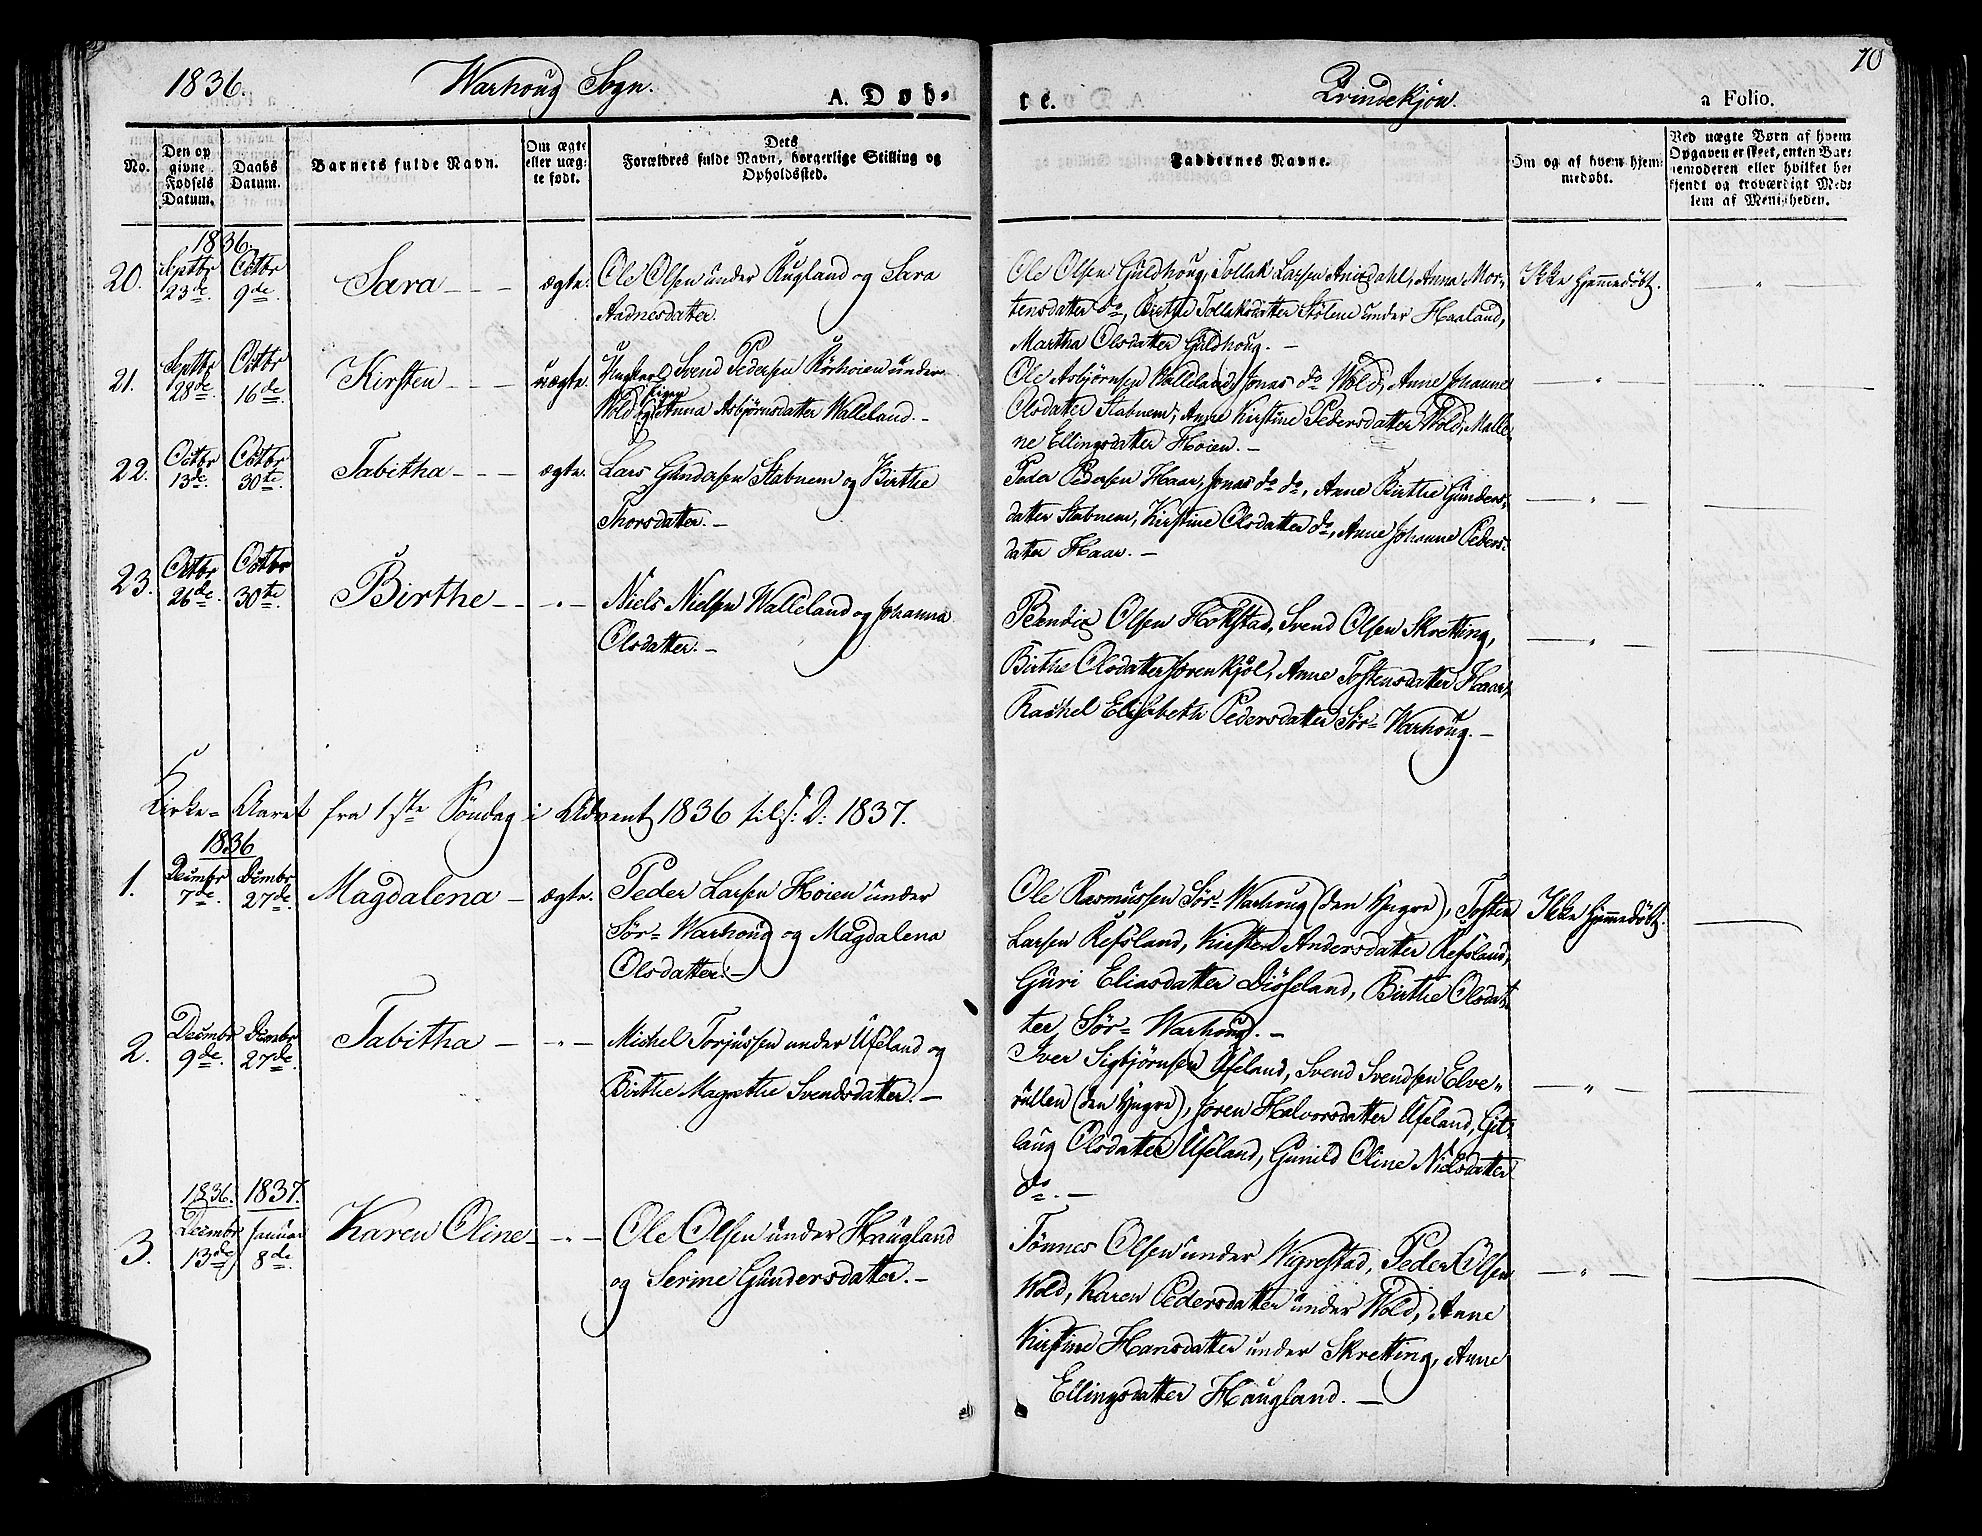 1836. Warhoug Sogn. A. Døb-
te. Qvindekjøn. a Folio. 70
No.
Den op
givne
Fødsels
Datum.
Daabs
Datum.
Barnets fulde Navn.
Om ægte
eller uæg-
te født.
Dets
Forældres fulde Navn, borgerlige Stilling og
Opholdssted.
Faddernes Navne.
Om og af hvem hjem-
medøbt.
Ved uægte Børn af hvem
Opgaven er skeet, enten Bar-
nemoderen eller hvilket be-
kjendt og troværdigt Med-
lem af Menigheden.
1836.
20. Septbr 23de. Octbr 9de. Sara - - - ægte. Ole Olsen under Rugland og Sara
Aadnesdatter.
Ole Olsen Guldhoug, Tollak Larsen Aniksdahl, Anna Mor-
tensdatter do, Birthe Tollaksdatter Stølene under Haaland,
Martha Olsdatter Guldhoug. -
Ikke hjemmedøbt. — " —
21. Septbr 28de. Octbr 16de. Kirsten - - - uægte. Ungkarl Svend Pedersen Rørhoien under
Wold og Pigen Anna Asbjørnsdatter Walleland. -
Ole Asbjørnsen Walleland, Jonas do Wold, Anne Johanne
Olsdatter Stabnem, Anne Kirstine Pedersdatter Wold, Malle-
ne Ellingsdatter Høien. -
— " —
22. Octbr 13de. Octbr 30te. Tabitha - - - ægte. Lars Gundersen Stabnem og Birthe
Thorsdatter. -
Peder Pedersen Haar, Jonas do do, Anne Birthe Gunders-
datter Stabnem, Kirstine Olsdatter do, Anne Johanne Peders-
datter Haar. -
— " —
23. Octbr 26de. Octbr 30te. Birthe - - - " - Niels Nielsen Walleland og Johanna
Olsdatter. -
Bendix Olsen Hokstad, Svend Olsen Skretting,
Birthe Olsdatter Sørenkjøl, Anne Tostensdatter Haar,
Rachel Elisabeth Pedersdatter Sør-Warhoug. -
— " —
Kirke-Aaret fra 1ste Søndag i Advent 1836 til s: D: 1837.
1836
1. Decembr 7de. Decembr 27de. Magdalena - ægte. Peder Larsen Høien under
Sør-Warhoug og Magdalena
Olsdatter. -
Ole Rasmussen Sør-Warhoug (den Yngre), Tosten
Larsen Refsland, Kirsten Andersdatter Refsland,
Guri Eliasdatter Diøseland, Birthe Olsdat-
ter Sør-Warhoug. -
Ikke hjemmedøbt. —
2. Decembr 9de. Decembr 27de. Tabitha - - " - Michel Torjussen under Ueland og
Birthe Magrethe Svendsdatter. -
Iver Sigbjørnsen Ueland, Svend Svendsen Elve-
rullen (den Yngre), Joren Halvorsdatter Ueland, Git-
laug Olsdatter Ueland, Gunild Oline Nielsdatter
do. -
— " —
1836. 1837.
3. Decembr 13de Januar 8de. Karen Oline - - " - Ole Olsen under Haugland
og Serine Gundersdatter. -
Tønnes Olsen under Wigrestad, Peder Olsen
Wold, Karen Pedersdatter under Wold, Anne
Kirstine Hansdatter under Skretting, Anne
Ellingsdatter Haugland. -
— " —